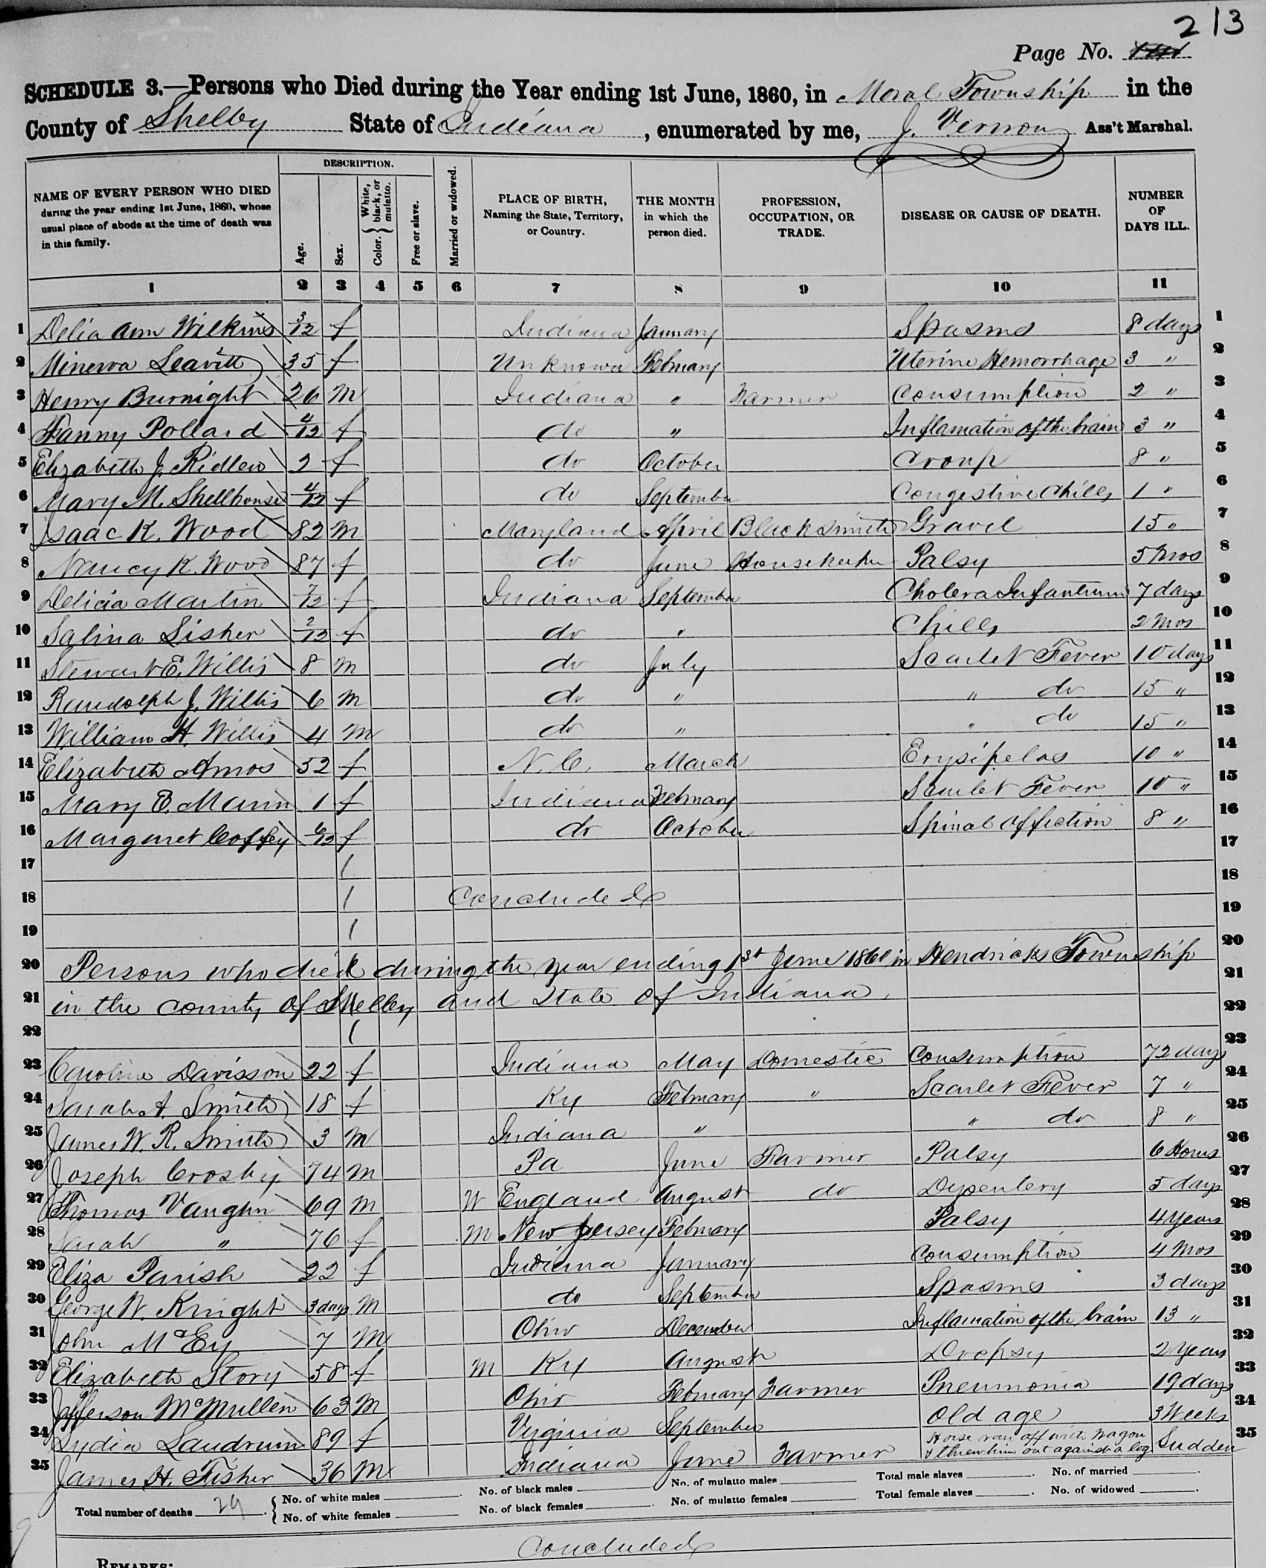 213
Page No.
SCHEDULE 3.—Persons who Died during the Year ending 1st June, 1860, in Moral Township in the
County of Shelby State of Indiana, enumerated by me, J. Vernon Ass't Marshal.
NAME OF EVERY PERSON WHO DIED during the year ending 1st June, 1860, whose usual place of abode at the time of death was in this family.
DESCRIPTION.
Age.
Sex.
Color. { White, black, or mulatto.
Free or slave.
Married or widowed.
PLACE OF BIRTH, Naming the State, Territory, or Country.
THE MONTH in which the person died.
PROFESSION, OCCUPATION, OR TRADE.
DISEASE OR CAUSE OF DEATH.
NUMBER OF DAYS ILL.
1 2 3 4 5 6 7 8 9 10 11
1 Delia Ann Wilkins 3/12 f Indiana January Spasms 8 days 1
2 Minerva Leavitt 35 f Unknown February Uterine Hemorrhage 3 " 2
3 Henry Burnight 26 m Indiana " Farmer Consumption 2 " 3
4 Fanny Pollard 4/12 f do " Inflamation of the brain 3 " 4
5 Elizabeth J. Ridlen 2 f do October Croup 8 " 5
6 Mary M. Shellhouse 4/12 f do September Congestive Chills 1 " 6
7 Isaac K. Wood 82 m Maryland April Blacksmith Gravel 15 " 7
8 Nancy K. Wood 87 f do June Housekeeper Palsy 5 mos 8
9 Delicia Martin 7/12 f Indiana September Cholera Infantium 7 days 9
10 Salina Lisher 2/12 f do " Chills 2 mos 10
11 Stewart E. Willis 8 m do July Scarlet Fever 10 days 11
12 Randolph J. Willis 6 m do " " do 15 " 12
13 William H. Willis 4 m do " " do 15 " 13
14 Elizabeth Amos 52 f N.C. March Erysipelas 10 " 14
15 Mary E. Mann 1 f Indiana February Scarlet Fever 10 " 15
16 Margaret Coffey 6/12 f do October Spinal affection 8 " 16
17 17
18 Concluded 18
19 19
20 Persons who died during the year ending 1st June 1860 in Hendricks Township 20
21 in the county of Shelby and State of Indiana. 21
22 22
23 Caroline Davisson 22 f Indiana May Domestic Consumption 72 days 23
24 Sarah A. Smith 18 f Ky February " Scarlet Fever 7 " 24
25 James W. R. Smith 3 m Indiana " " do 8 " 25
26 Joseph Crosby 74 m Pa June Farmer Palsy 6 Hours 26
27 Thomas Vaughn 69 m W England August do Dysentery 5 days 27
28 Sarah " 76 f m New Jersey February Palsy 4 years 28
29 Eliza Parish 22 f Indiana January Consumption 4 mos 29
30 George W. Knight 3 days m do September Spasms 3 days 30
31 John McEy 7 m Ohio December Inflamation of the brain 13 " 31
32 Elizabeth Story 58 f m Ky August Dropsy 2 years 32
33 Jefferson McMullen 63 m Ohio February Farmer Pneumonia 19 days 33
34 Lydia Landrum 89 f Virginia September Old age 3 Weeks 34
35 James H. Fisher 36 m Indiana June Farmer Horse ran off with wagon & threw him out against a log Sudden 35
Total number of deaths 29
No. of white males
No. of white females
No. of black males
No. of black females
No. of mulatto males
No. of mulatto females
Total male slaves
Total female slaves
No. of married
No. of widowed
Concluded
REMARKS: